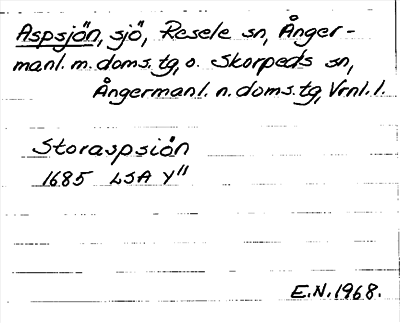 Aspsjön, sjö, Resele sn, Ånger-
manl. m. doms. tg, o. Skorpeds sn,
Ångermanl. n. doms. tg, Vrnl. l.
Storaspsiön
1685 LSA Y"
E.N. 1968.